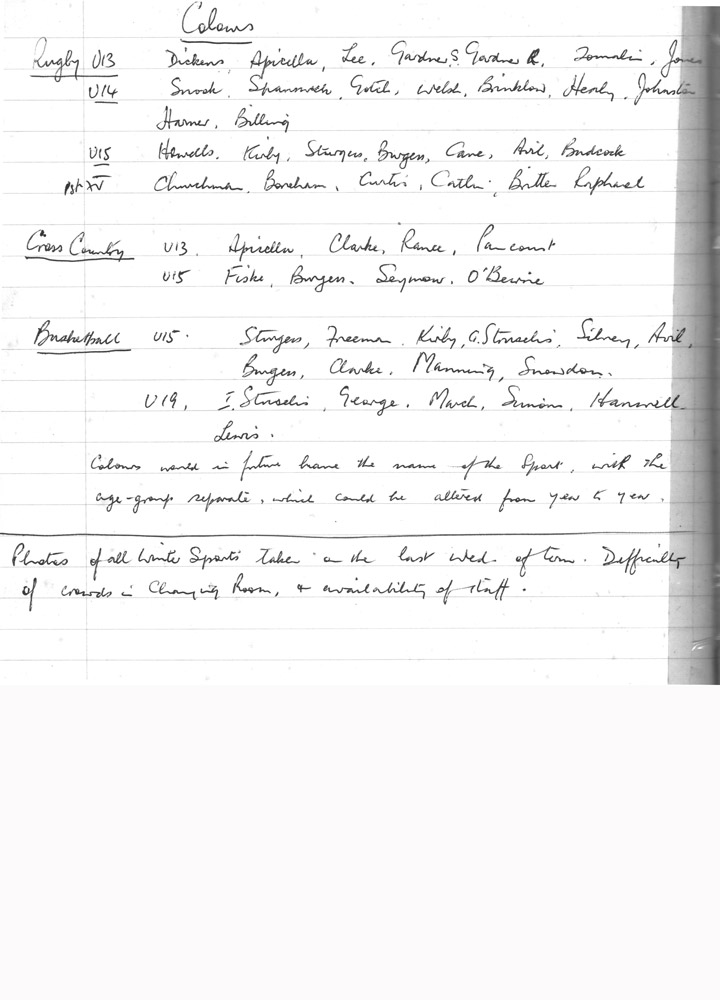 Colours
Rugby U13 Dickens, Apicella, Lee, Gardner S. Gardner R, Tomalin, Jones
U14 Snook, Gotch, Welsh, Brinklow, Henly, Johnston
Harner, Billing
U15 Howells, Kirby, Sturgess, Burgess, Cane, Avil, Budcock
1st XV Churchman, Boreham, Curtis, Catlin, Britten Raphael
Cross Country U13. Apicella, Clarke, Rance, Pancourt
U15 Fiske, Burgess, Seymour, O'Beirne
Basketball U15. Sturgess, Freeman, Kirby, Silvey, Avil,
Burgess, Clarke, Manning, Snowdon.
U19, George, March, Simons, Hanwell
Lewis.
Colours would in future have the name of the Sport, with the
age-group separate, which could be altered from year to year.
Photos of all Winter Sports taken on the last Wed. of term. Difficulty
of crowds in Changing Room, & availability of staff.